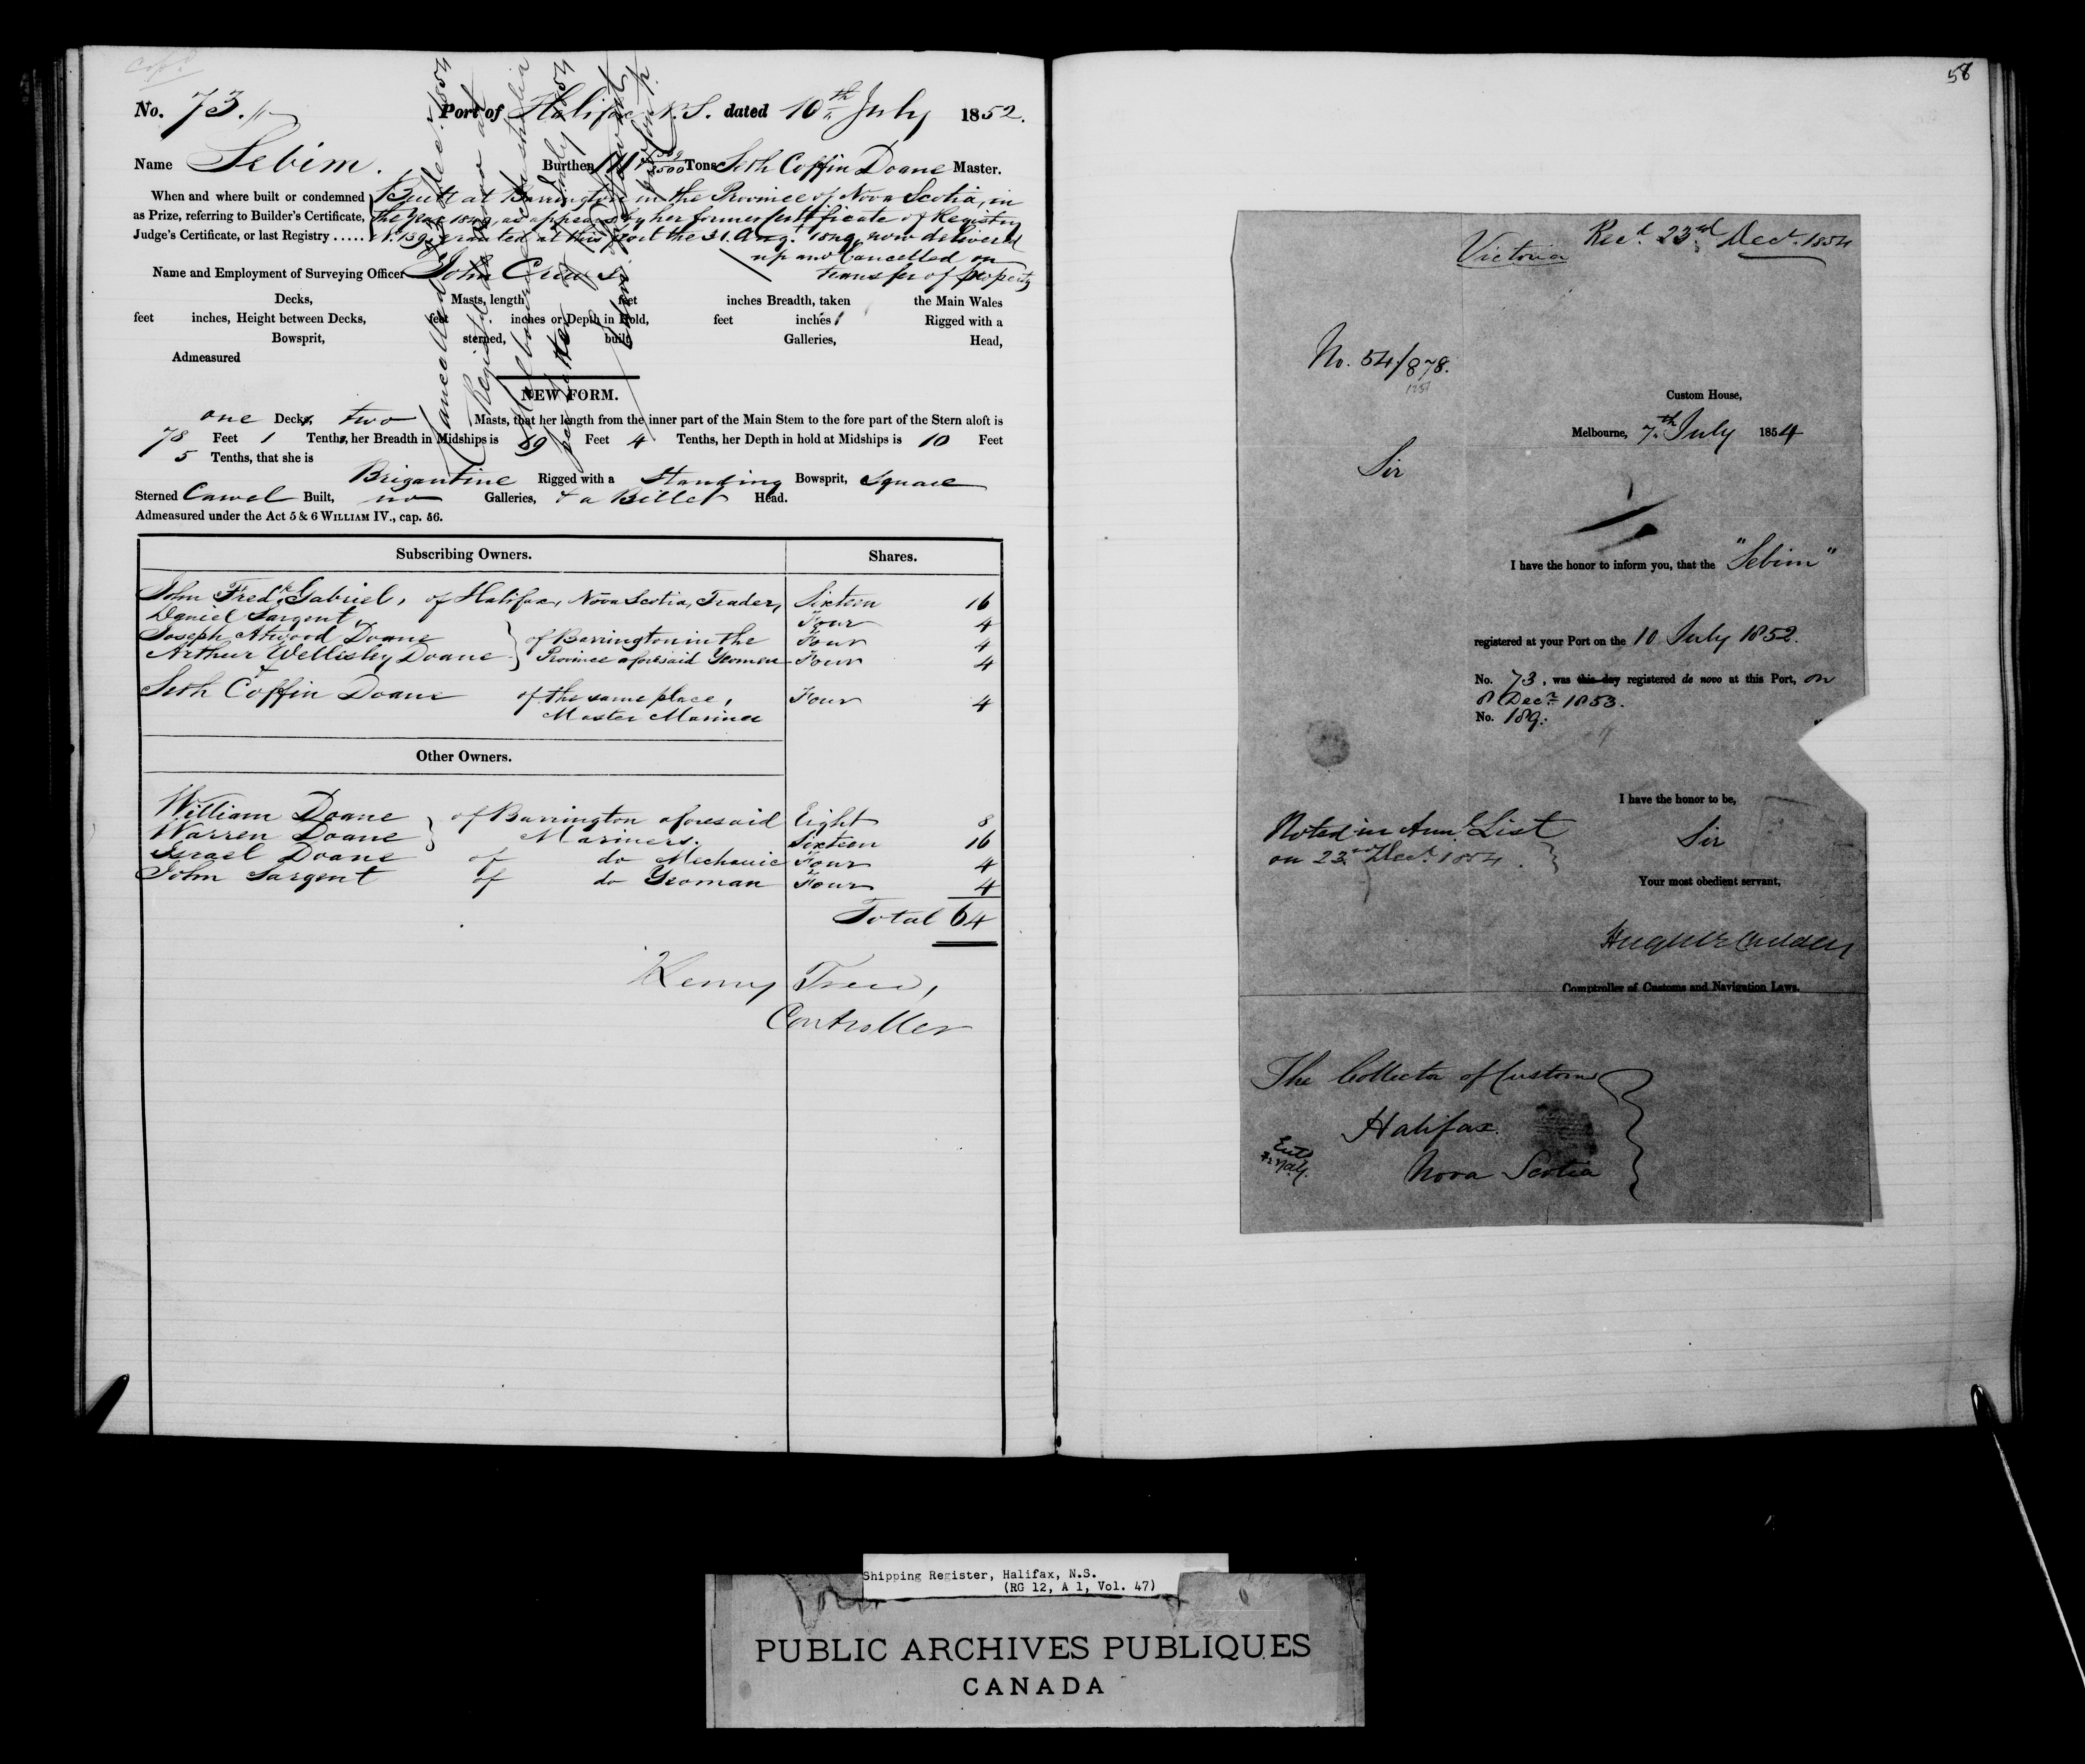 No. 73. Port of Halifax N.S. dated 10th July 1852.
Name Sebim. Burthen 111 Tons Seth Coffin Doane Master.
When and where built or condemned Built at Barrington in the Province of Nova Scotia, in
as Prize, referring to Builder's Certificate, the Year 1849, as appears by her former Certificate of Registry
Judge's Certificate, or last Registry ...... No. 139, granted at this port the 31. Augt. 1849, now delivered
up and Cancelled on
transfer of property
Name and Employment of Surveying Officer John Crews
Decks, Masts, length feet inches Breadth, taken the Main Wales
feet inches, Height between Decks, feet inches or Depth in Hold, feet inches Rigged with a
Bowsprit, sterned, built, Galleries, Head,
Admeasured
NEW FORM.
one Deck, two Masts, that her length from the inner part of the Main Stem to the fore part of the Stern aloft is
78 Feet 1 Tenths, her Breadth in Midships is 19 Feet 4 Tenths, her Depth in hold at Midships is 10 Feet
5 Tenths, that she is
Brigantine Rigged with a Standing Bowsprit, Square
Sterned Carvel Built, no Galleries, & a Billet Head.
Admeasured under the Act 5 & 6 WILLIAM IV., cap. 56.
Cancelled Dec. 1854
Registd de novo at
Melbourne Australia
Subscribing Owners. Shares.
John Fredk. Gabriel, of Halifax, Nova Scotia, Trader, Sixteen 16
Daniel Sargent, Four 4
Joseph Atwood Doane of Barrington in the Four 4
Arthur Wellisley Doane Province aforesaid Yeomen Four 4
&
Seth Coffin Doane of the same place, Four 4
Master Mariner
Other Owners.
William Doane of Barrington aforesaid Eight 8
Warren Doane Mariners. Sixteen 16
Israel Doane of do Mechanic Four 4
John Sargent of do Yeoman Four 4
Total 64
Controller
58
Recd. 23rd Decr. 1854
Victoria
No. 54/878.
Custom House,
Melbourne, 7th July 1854
Sir
I have the honor to inform you, that the "Sebim"
registered at your Port on the 10 July 1852.
No. 73, was this day registered de novo at this Port, on
8 Decr. 1853.
No. 189.
I have the honor to be,
Noted in Annl. List
on 23rd Decr. 1854.
Sir
Your most obedient servant,
Comptroller of Customs and Navigation Laws.
The Collector of Customs
Halifax.
Nova Scotia
Shipping Register, Halifax, N.S.
(RG 12, A 1, Vol. 47)
PUBLIC ARCHIVES PUBLIQUES
CANADA